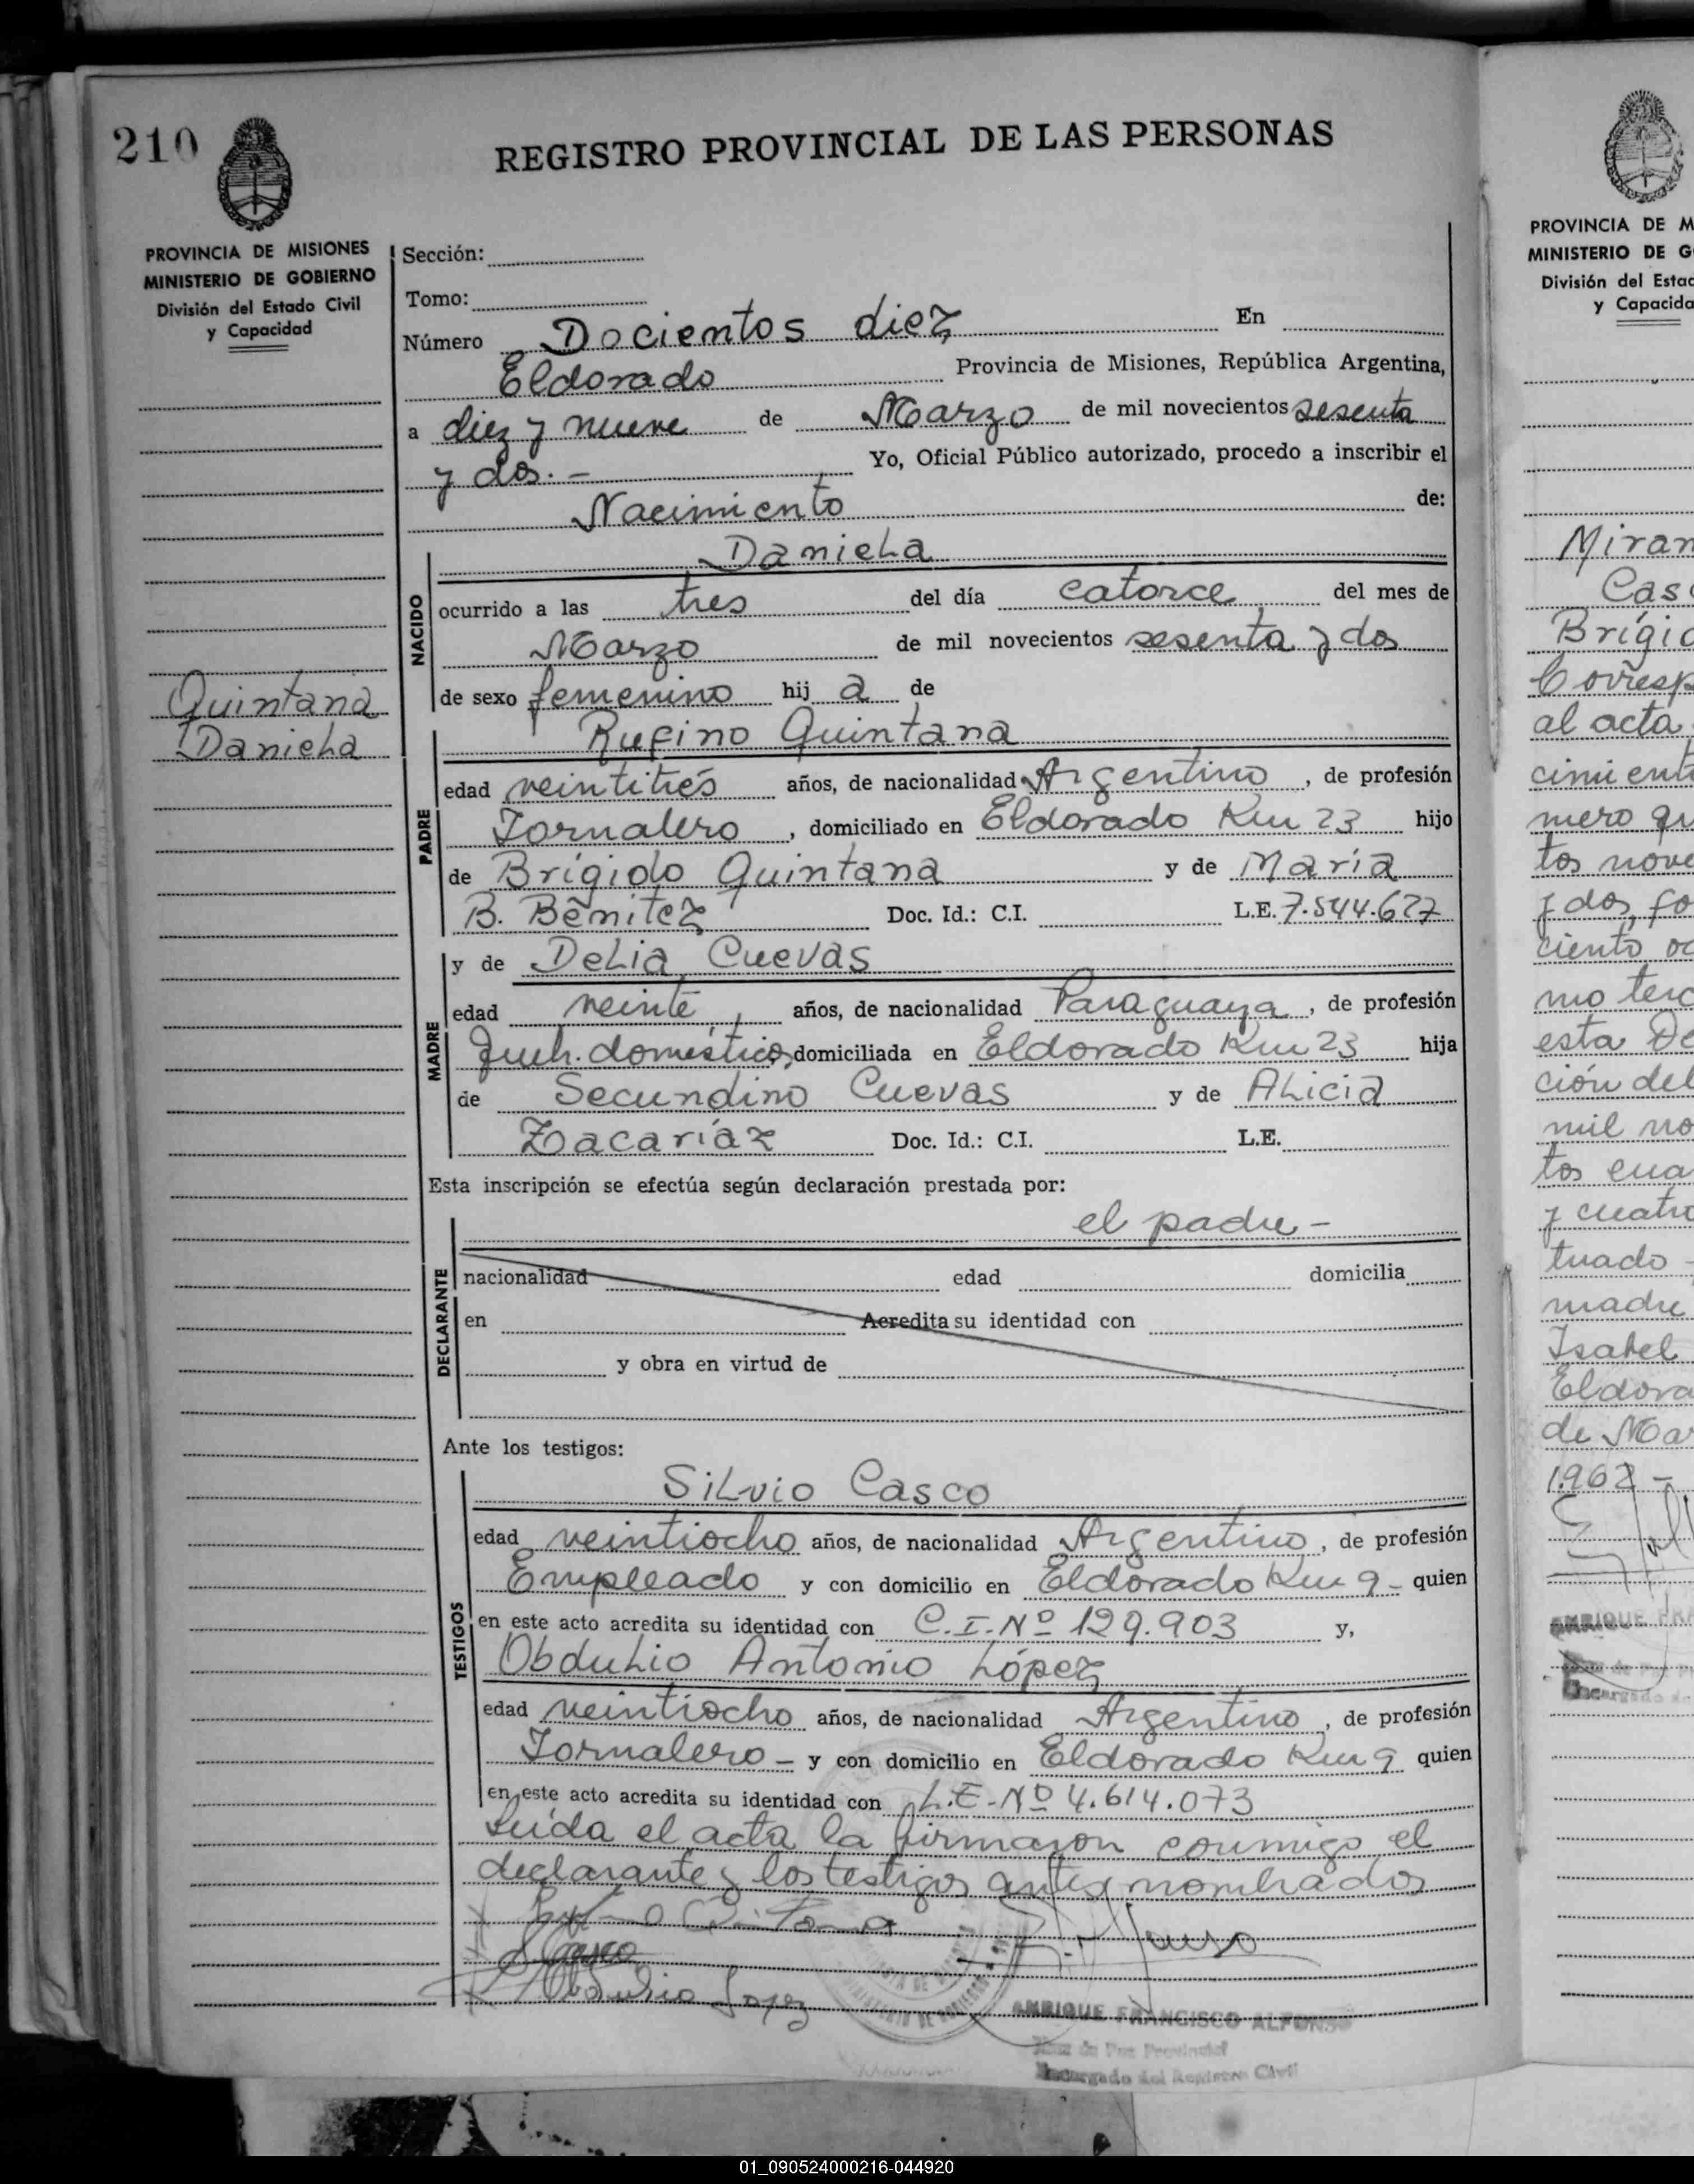 210
REGISTRO PROVINCIAL DE LAS PERSONAS
PROVINCIA DE MISIONES
MINISTERIO DE GOBIERNO
División del Estado Civil
y Capacidad
Sección:
Tomo:
Número Docientos diez En
Eldorado Provincia de Misiones, República Argentina,
a diez y nueve de Marzo de mil novecientos sesenta
y dos.- Yo, Oficial Público autorizado, procedo a inscribir el
Nacimiento de:
Daniela
NACIDO
ocurrido a las tres del día catorce del mes de
Marzo de mil novecientos sesenta y dos
de sexo femenino hij a de
Quintana
Daniela
Rufino Quintana
PADRE
edad veintitrés años, de nacionalidad Argentino, de profesión
Jornalero, domiciliado en Eldorado Km 23 hijo
de Brígido Quintana y de María
B. Benitez Doc. Id.: C.I. L.E. 7.544.627
y de Delia Cuevas
MADRE
edad veinte años, de nacionalidad Paraguaya, de profesión
Queh. domésticos, domiciliada en Eldorado Km 23 hija
de Secundino Cuevas y de Alicia
Zacaríaz Doc. Id.: C.I. L.E.
Esta inscripción se efectúa según declaración prestada por:
el padre -
DECLARANTE
nacionalidad edad domicilia
en Acredita su identidad con
y obra en virtud de
Ante los testigos:
Silvio Casco
TESTIGOS
edad veintiocho años, de nacionalidad Argentino, de profesión
Empleado y con domicilio en Eldorado Km 9 - quien
en este acto acredita su identidad con C.I. Nº 129.903 y,
Obdulio Antonio López
edad veintiocho años, de nacionalidad Argentino, de profesión
Jornalero - y con domicilio en Eldorado Km 9 quien
en este acto acredita su identidad con L.E. Nº 4.614.073
Leída el acta la firmaron conmigo el
declarante y los testigos antes nombrados
Rufino Quintana
S Casco
Obdulio Lopez
ENRIQUE FRANCISCO ALFONSO
Juez de Paz Provincial
Encargado del Registro Civil
PROVINCIA DE M
MINISTERIO DE G
División del Estad
y Capacida
Miran
Cas
Brígid
Corresp
al acta
cimient
mero qu
tos nove
y dos, fo
ciento oc
mo terc
esta De
ción del
mil no
tos cua
y cuatro
tuado -
madre
Isabel
Eldora
de Mar
1.962 -
ENRIQUE FRA
Encargado de
01_090524000216-044920